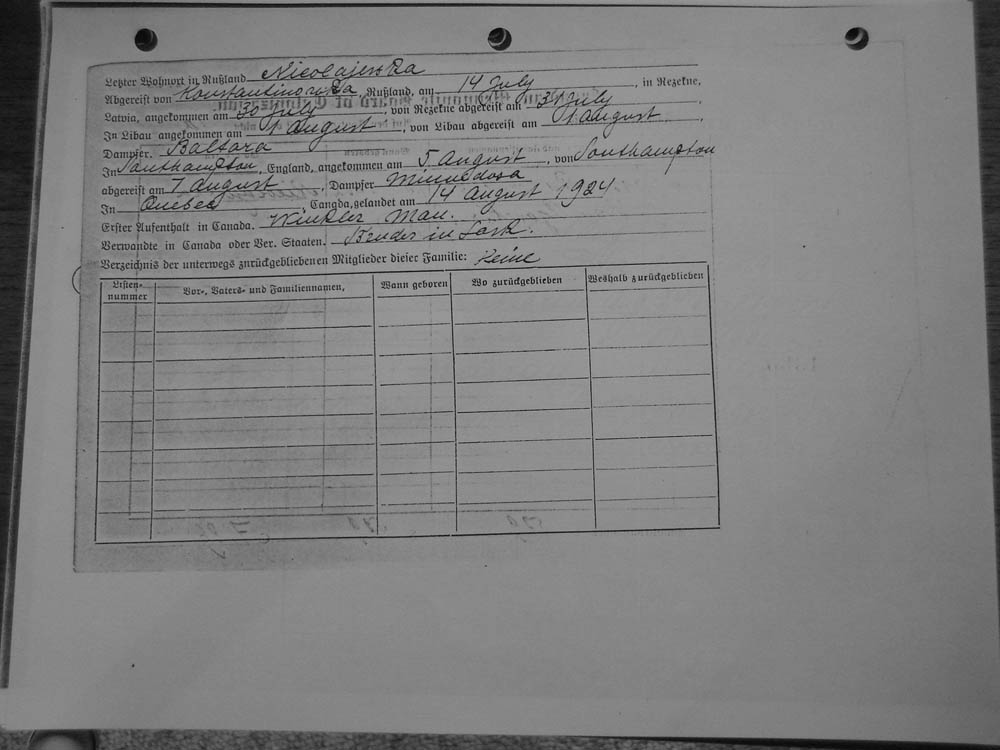 Letzter Wohnort in Rußland Nicolajewka
Abgereist von Konstantinowka, Rußland, am 14 July, in Rezekne,
Latvia, angekommen am 30 July, von Rezekne abgereist am 31 July,
In Libau angekommen am 1 August, von Libau abgereist am 1 August,
Dampfer. Baltara
In Southampton, England, angekommen am 5 August, von Southampton
abgereist am 7 August, Dampfer Minnedosa
In Quebec, Canada, gelandet am 14 August 1924
Erster Aufenthalt in Canada. Winkler Man.
Verwandte in Canada oder Ver. Staaten. Bruder in Sask.
Verzeichnis der unterwegs zurückgebliebenen Mitglieder dieser Familie: Keine
Listen-nummer Vor-, Vaters- und Familiennamen, Wann geboren Wo zurückgeblieben Weshalb zurückgeblieben